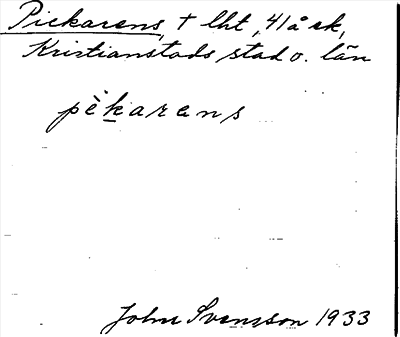 Pickarens, † lht, 4/å sk,
Kristianstads stad o. län
pèkarens
John Svensson 1933